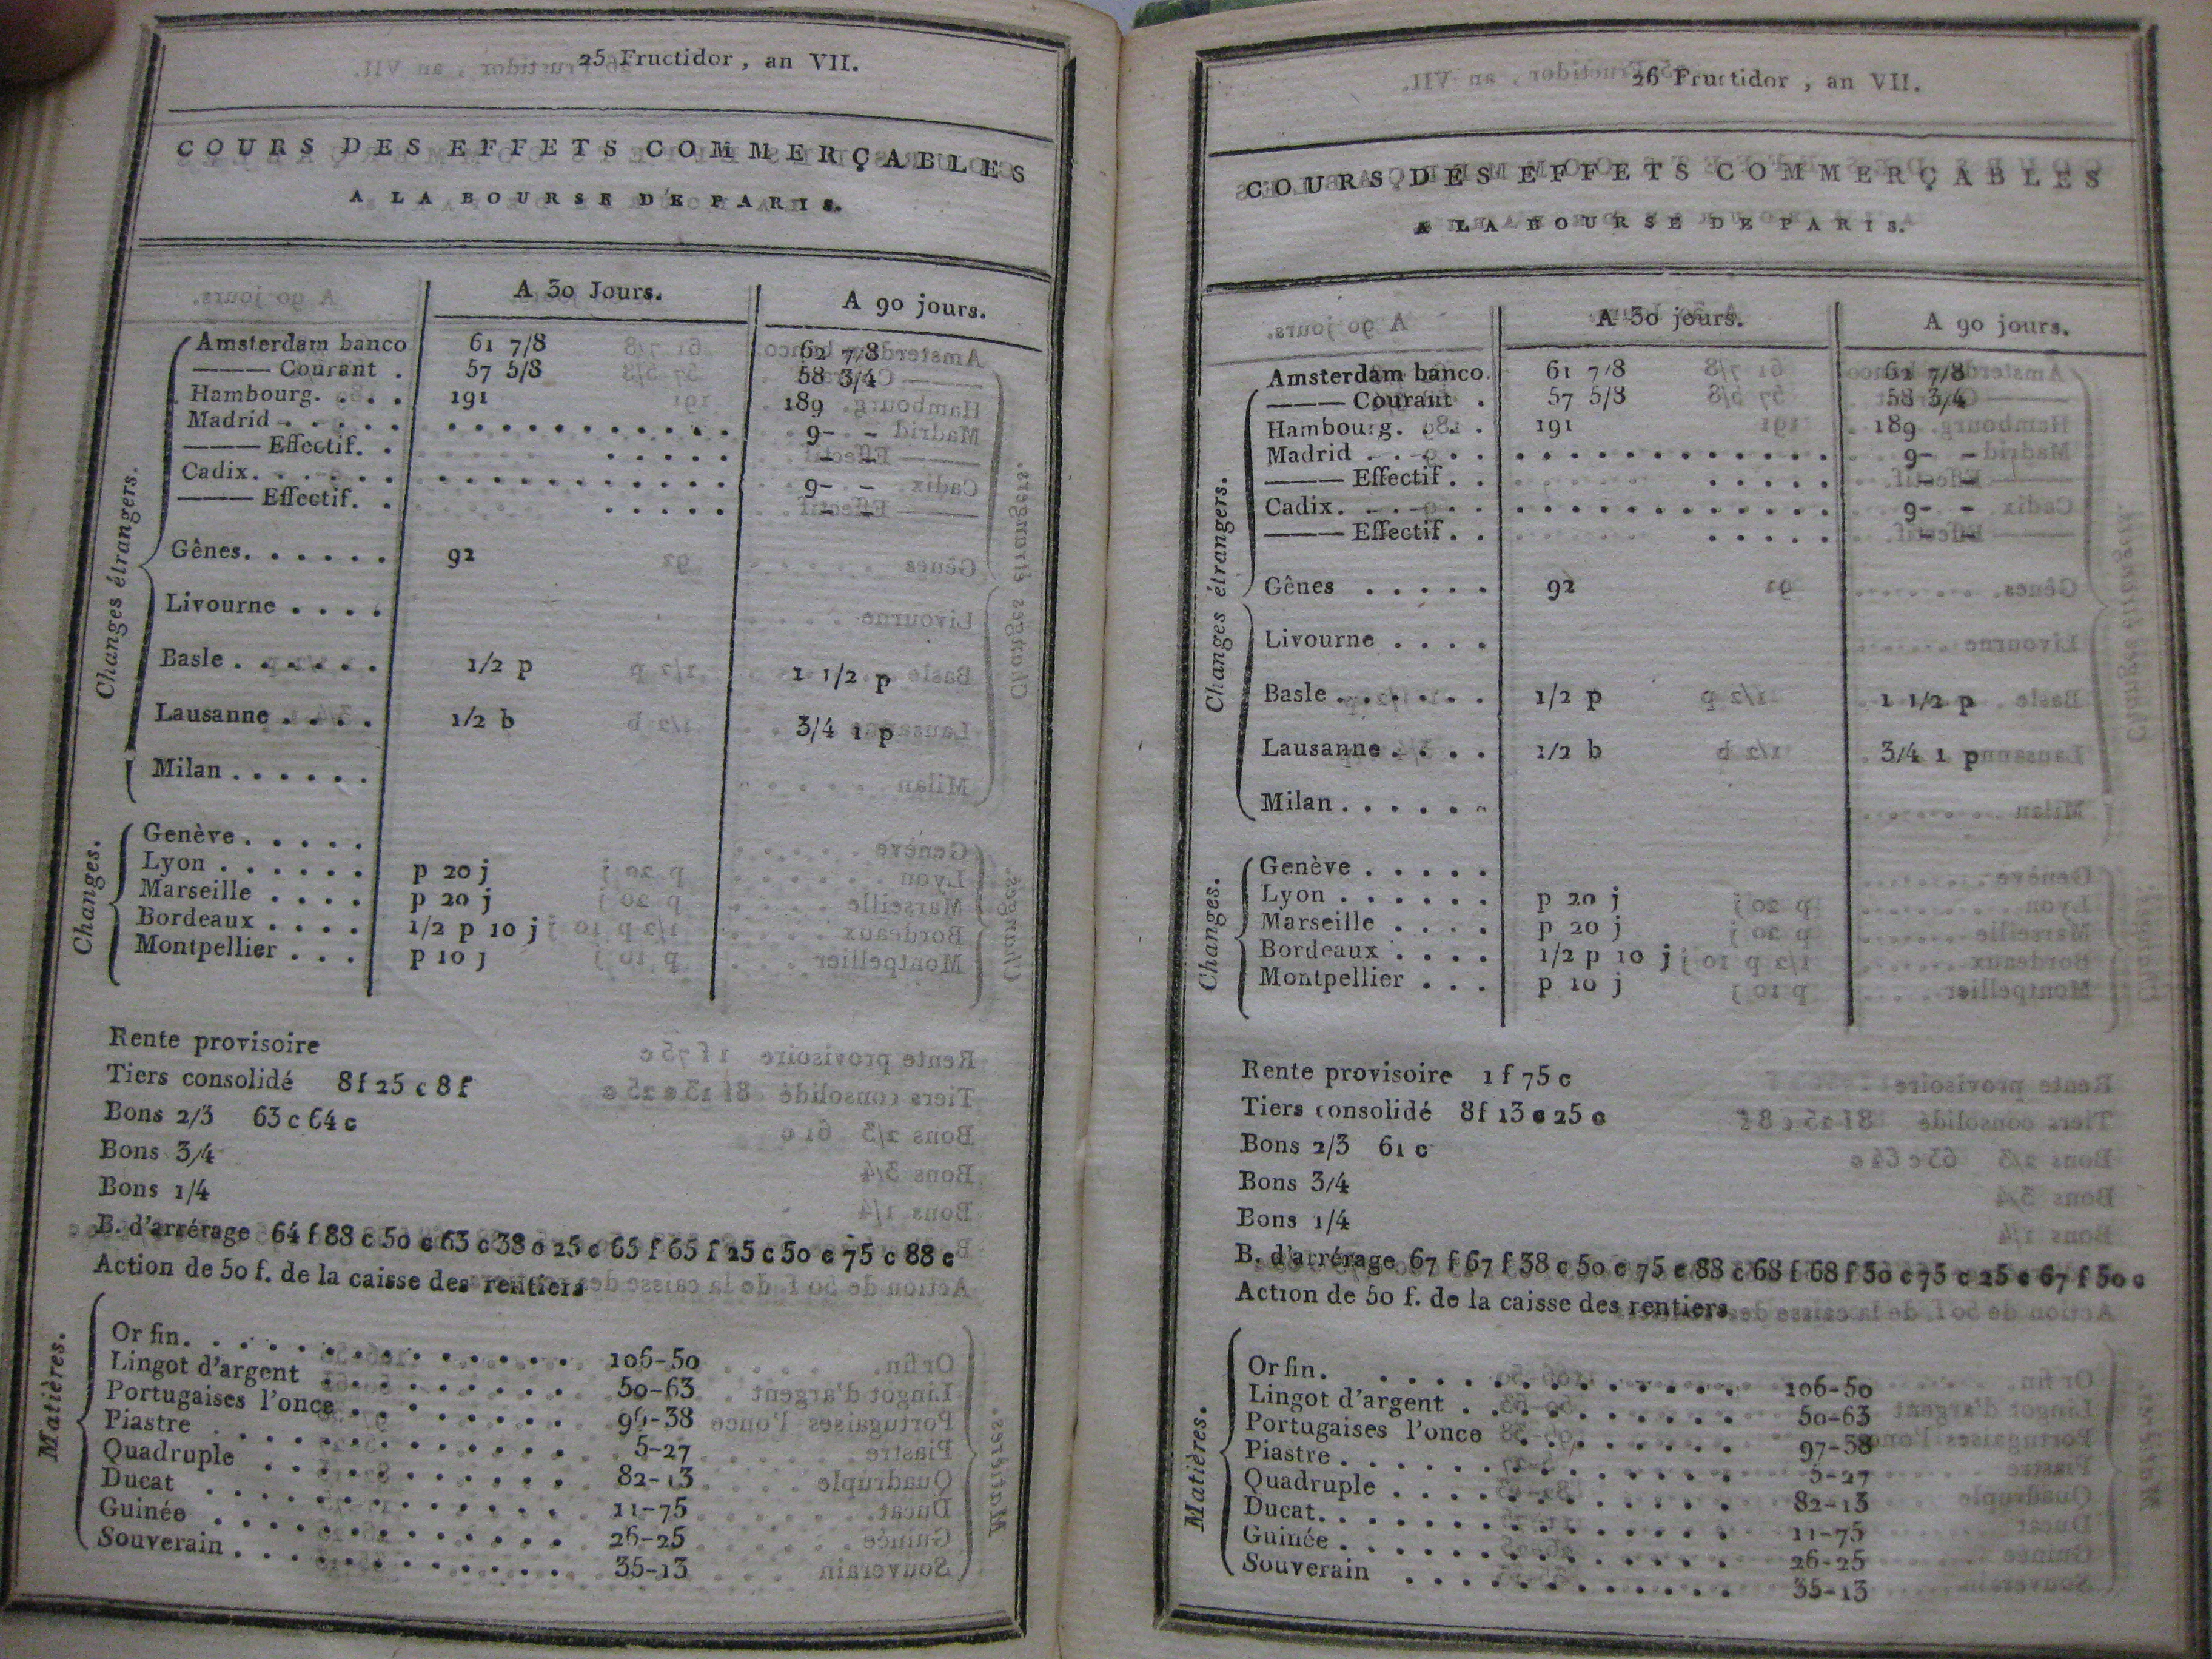 25 Fructidor, an VII.
COURS DES EFFETS COMMERÇABLES
A LA BOURSE DE PARIS.
A 30 Jours. A 90 jours.
Changes étrangers.
Amsterdam banco 61 7/8 62 7/8
——— Courant . 57 5/8 58 3/4
Hambourg. . . . 191 189
Madrid . . . . . . . . . . . . . . . . 9- -
——— Effectif. . . . . . . - -
Cadix. . . . . . . . . . . . . . . . . 9- -
——— Effectif. . . . . . . - -
Gênes. . . . . . 92
Livourne . . . .
Basle . . . . . . 1/2 p 1 1/2 p
Lausanne . . . . 1/2 b 3/4 1 p
Milan . . . . . .
Changes.
Genève . . . . .
Lyon . . . . . . p 20 j
Marseille . . . . p 20 j
Bordeaux . . . . 1/2 p 10 j
Montpellier . . . p 10 j
Rente provisoire
Tiers consolidé 8 f 25 c 8 f
Bons 2/3 63 c 64 c
Bons 3/4
Bons 1/4
B. d'arrérage 64 f 88 c 50 c 63 c 38 c 25 c 65 f 65 f 25 c 50 c 75 c 88 c
Action de 50 f. de la caisse des rentiers
Matières.
Or fin. . . . . . . . . . . . . . 106-50
Lingot d'argent . . . . . . . . . 50-63
Portugaises l'once . . . . . . . . 96-38
Piastre . . . . . . . . . . . . . 5-27
Quadruple . . . . . . . . . . . . 82-13
Ducat . . . . . . . . . . . . . . 11-75
Guinée . . . . . . . . . . . . . . 26-25
Souverain . . . . . . . . . . . . 35-13
26 Fructidor, an VII.
COURS DES EFFETS COMMERÇABLES
A LA BOURSE DE PARIS.
A 30 jours. A 90 jours.
Changes étrangers.
Amsterdam banco. 61 7/8 62 7/8
——— Courant . 57 5/8 58 3/4
Hambourg. . . . 191 189
Madrid . . . . . . . . . . . . . . . . 9- -
——— Effectif . . . . . . . - -
Cadix. . . . . . . . . . . . . . . . . 9- -
——— Effectif . . . . . . . - -
Gênes . . . . . 92
Livourne . . . .
Basle . . . . . . 1/2 p 1 1/2 p
Lausanne . . . . 1/2 b 3/4 1 p
Milan . . . . . .
Changes.
Genève . . . . .
Lyon . . . . . . p 20 j
Marseille . . . . p 20 j
Bordeaux . . . . 1/2 p 10 j
Montpellier . . . p 10 j
Rente provisoire 1 f 75 c
Tiers consolidé 8 f 13 c 25 c
Bons 2/3 61 c
Bons 3/4
Bons 1/4
B. d'arrérage 67 f 67 f 38 c 50 c 75 c 88 c 68 f 68 f 50 c 75 c 25 c 67 f 50 c
Action de 50 f. de la caisse des rentiers.
Matières.
Or fin. . . . . . . . . . . . . . 106-50
Lingot d'argent . . . . . . . . . 50-63
Portugaises l'once . . . . . . . . 97-38
Piastre . . . . . . . . . . . . . 5-27
Quadruple . . . . . . . . . . . . 82-13
Ducat. . . . . . . . . . . . . . . 11-75
Guinée . . . . . . . . . . . . . . 26-25
Souverain . . . . . . . . . . . . 35-13